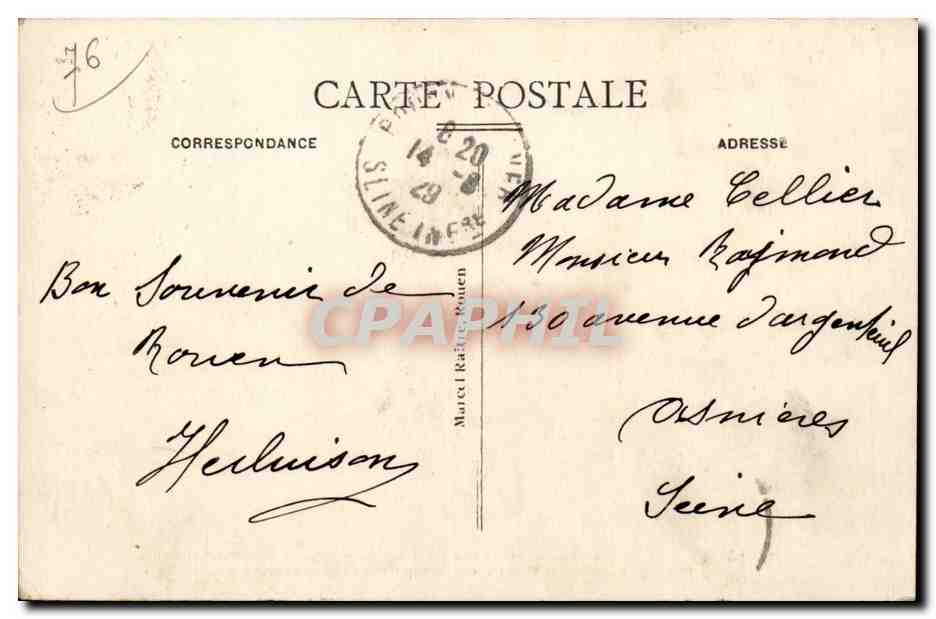 76
CARTE POSTALE
CORRESPONDANCE
ADRESSE
8 20
14 - 8
29
SEINE INFRE
Bon Souvenir de
Rouen
Herluison
Marcel Raitre, Rouen
Madame Tellier
Monsieur Raymond
130 avenue d'argenteuil
Asnières
Seine
CPAPHIL